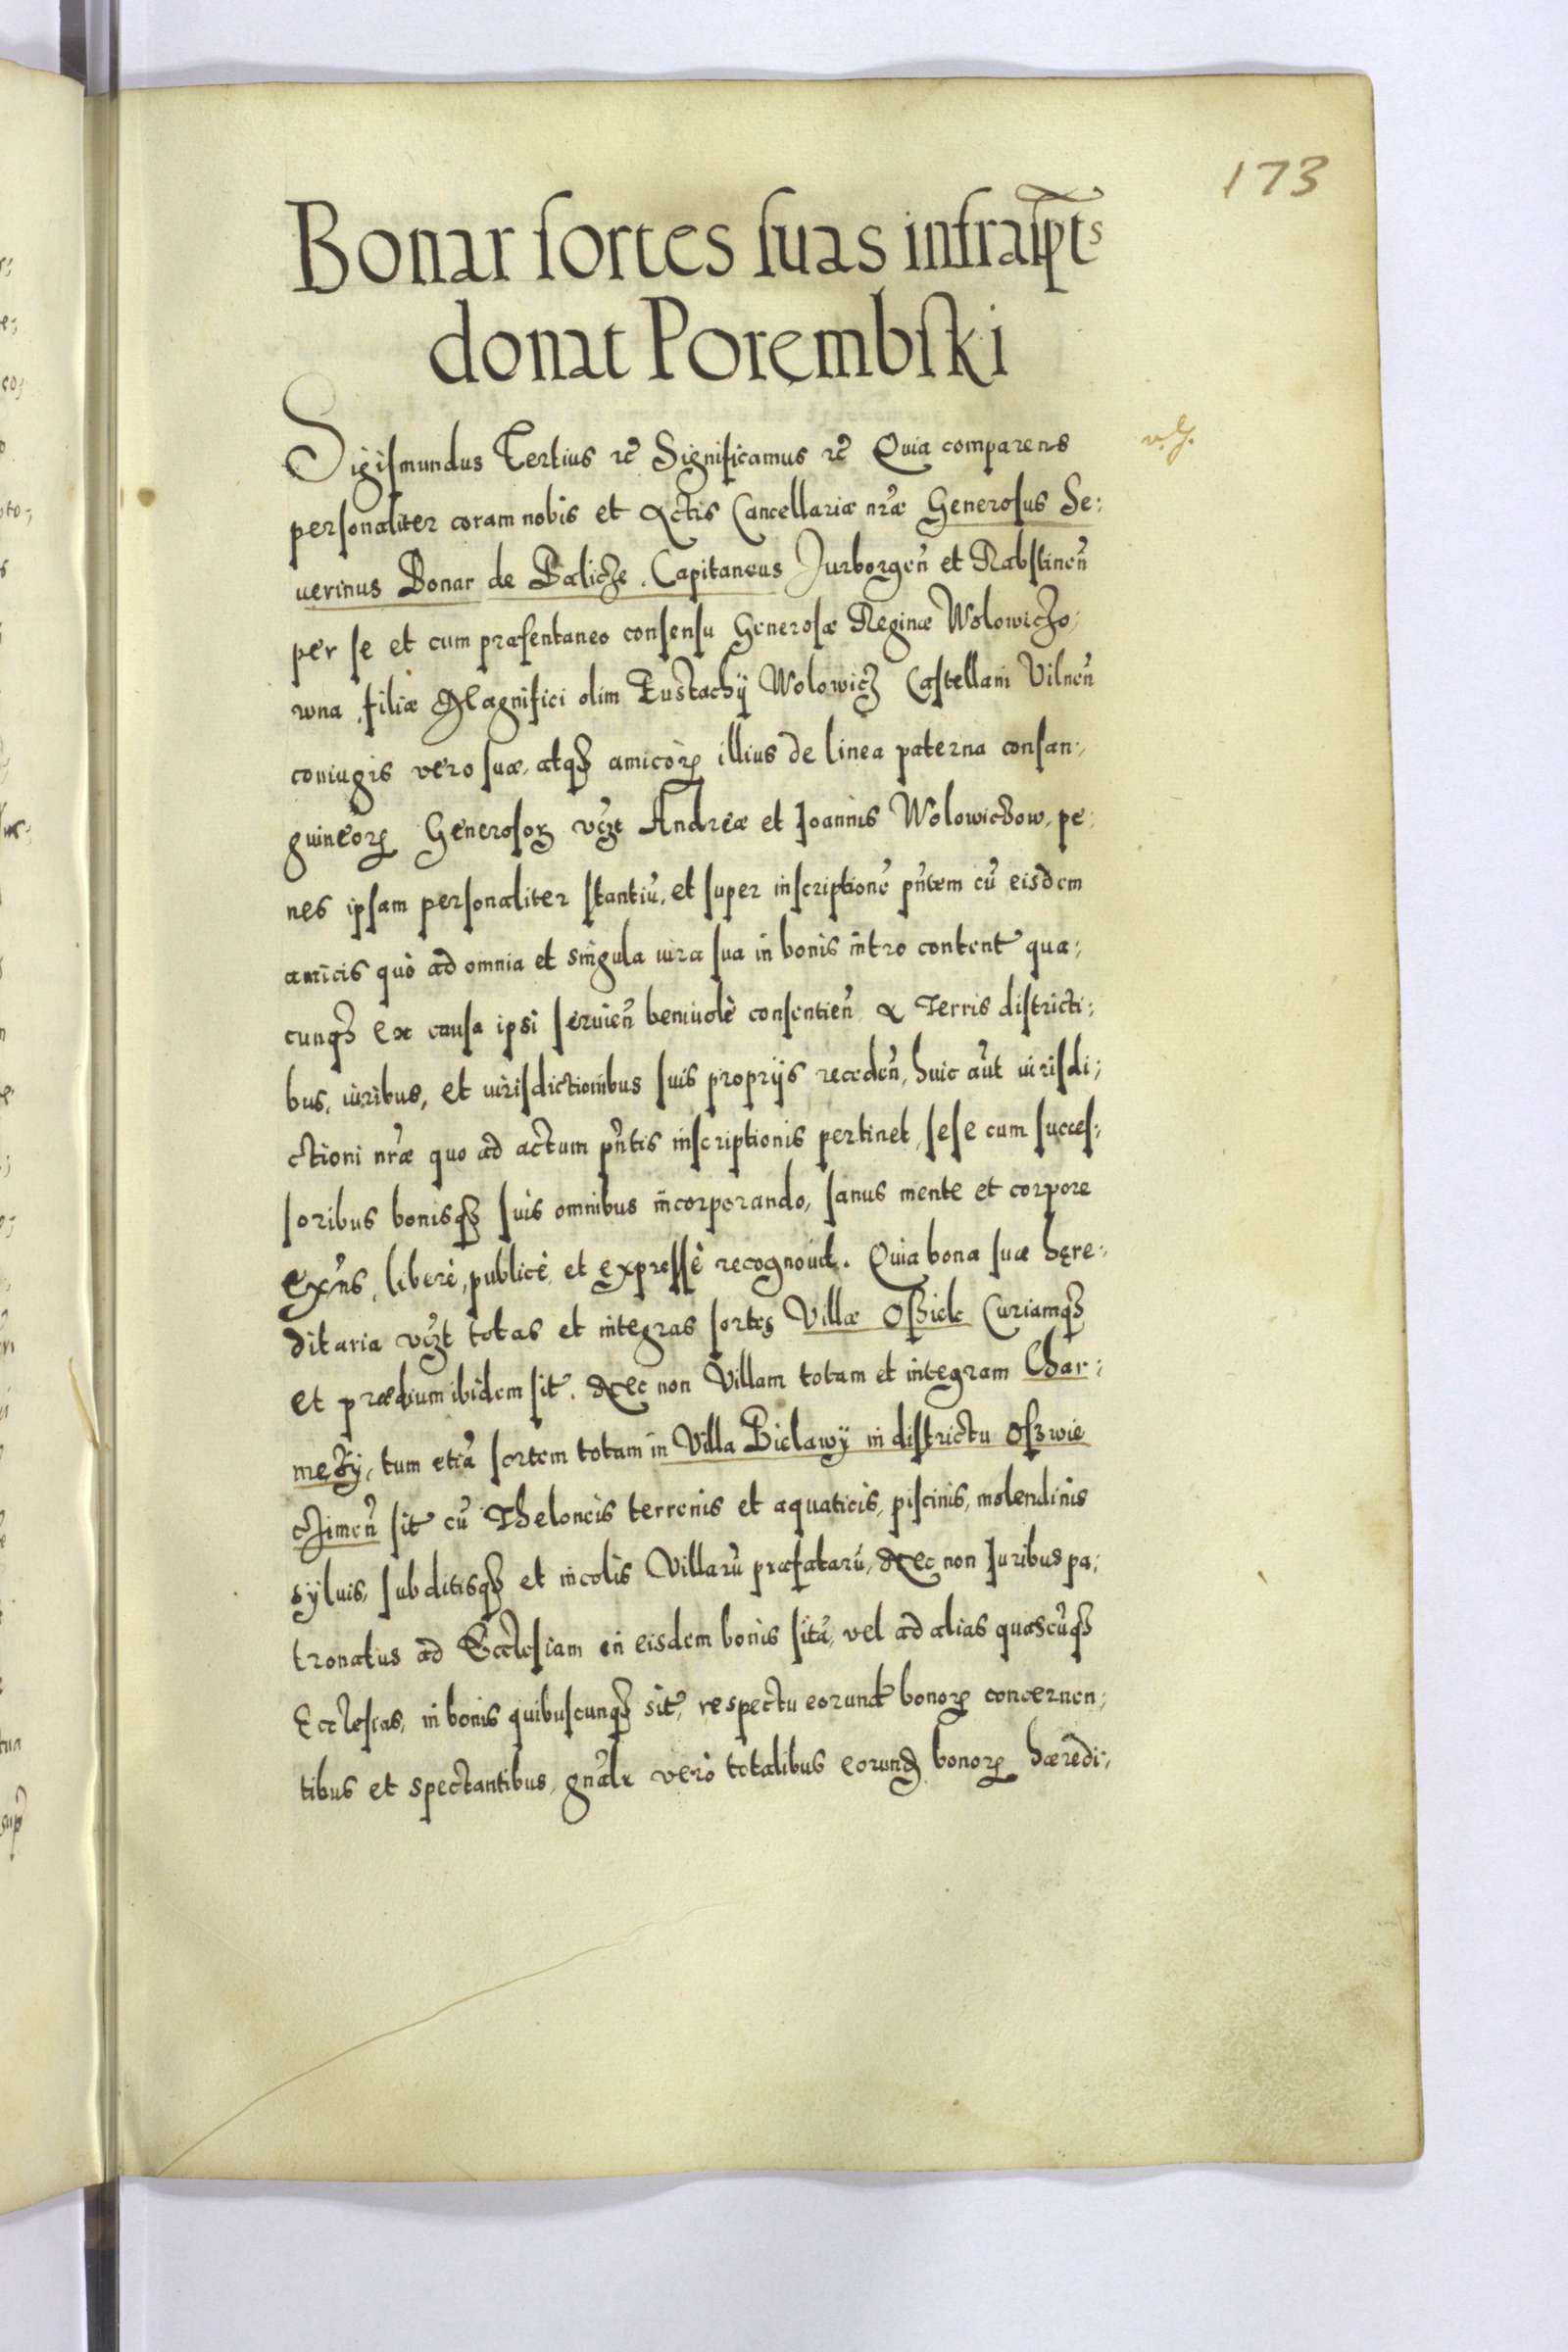 173
Bonar sortes suas infrasptˢ
donat Porembski
Sigismundus Tertius rc̃ Significamus rc̃ Quia comparens
personaliter coram nobis et Actis Cancellariæ nr̃æ Generosus Se:
uerinus Bonar de Balicze Capitaneus Jurborgeñ et Rabstineñ
per se et cum præsentaneo consensu Generosæ Reginæ Wolowiczo:
wna, filiæ Magnifici olim Eustachÿ Wolowicz Castellani Vilneñ
coniugis vero suæ, atqꝫ amicorꝝ illius de linea paterna consan:
guineorꝝ Generosorꝝ vcꝫt Andreæ et Joannis Wolowiczow, pe:
nes ipsam personaliter stantiũ, et super inscriptionẽ pñtem cũ eisdem
amicis quò ad omnia et singula iura sua in bonis intro content̃ qua:
cunqꝫ ex causa ipsi seruieñ beniuolè consentieñ a Terris districti:
bus, iuribus, et iurisdictionibus suis proprijs recedeñ, huic aũt iurisdi:
ctioni nr̃æ quo ad actum pñtis inscriptionis pertinet, sese cum succes:
soribus bonisqꝫ suis omnibus incorporando, sanus mente et corpore
Exñs, liberè, publicè, et expressè recognouit. Quia bona sua hęre:
ditaria vcꝫt totas et integras sortes Villæ Osziek Curiamqꝫ
et prædium ibidem sit̃. Nec non Villam totam et integram Char:
męzÿ, tum etiã sortem totam in Villa Bielawÿ in districtu Oszwie
czimeñ sit̃ cũ Theloneis terrenis et aquaticis, piscinis, molendinis
syluis, subditisqꝫ et incolis Villarũ præfatarũ, Nec non Juribus pa:
tronatus ad Ecclesiam in eisdem bonis sitã, vel ad alias quascũqꝫ
Ecclesias, in bonis quibuscunqꝫ sit̃, respectu eorund̃ bonorꝝ concernen:
tibus et spectantibus, gñalr vero totalibus eorund̃ bonorꝝ hæredi: